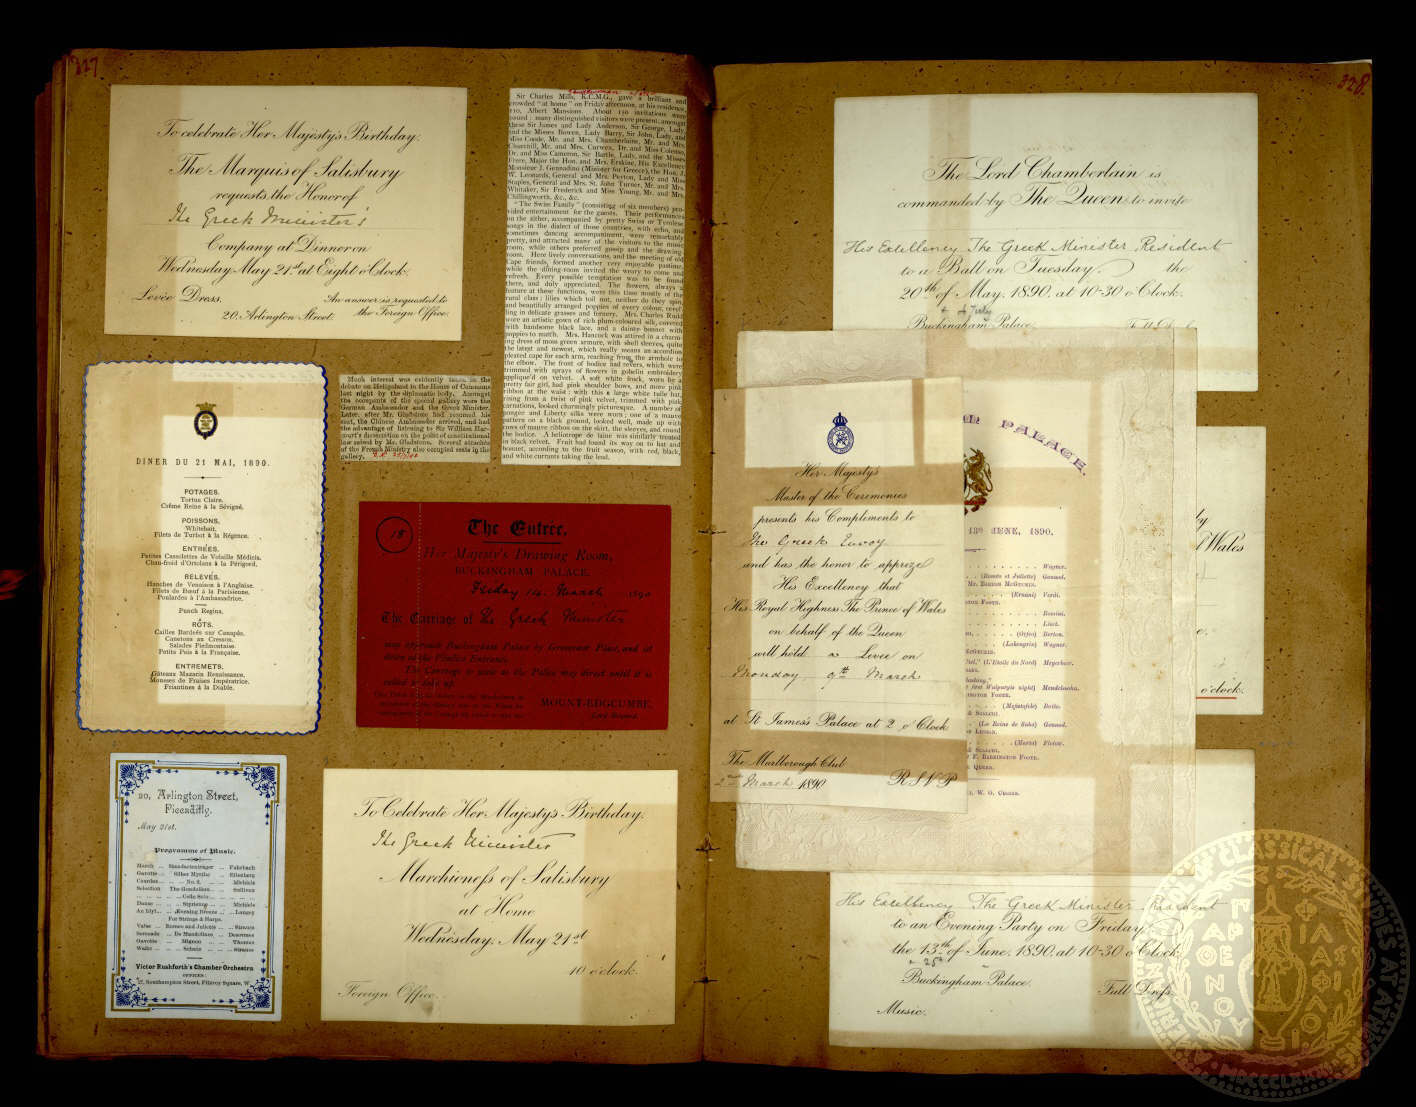 327
To celebrate Her Majesty's Birthday.
The Marquis of Salisbury
requests the Honor of
The Greek Minister's
Company at Dinner on
Wednesday May 21st at Eight o'Clock.
Levée Dress.
An answer is requested to
20, Arlington Street.
the Foreign Office.
Sir Charles Mills, K.C.M.G., gave a brilliant and
crowded "at home" on Friday afternoon, at his residence,
110, Albert Mansions. About 150 invitations were
issued: many distinguished visitors were present; amongst
these Sir James and Lady Anderson, Sir George, Lady,
and the Misses Bowen, Lady Barry, Sir John, Lady, and
Miss Coode, Mr. and Mrs. Chamberlaine, Mr. and Mrs.
Churchill, Mr. and Mrs. Curwen, Dr. and Miss Colenso,
Dr. and Miss Cameron, Sir Bartle, Lady, and the Misses
Frere, Major the Hon. and Mrs. Erskine, His Excellency
Monsieur J. Gennadius (Minister for Greece), the Hon. J.
W. Leonards, General and Mrs. Peyton, Lady and Miss
Staples, General and Mrs. St. John Turner, Mr. and Mrs.
Whitaker, Sir Frederick and Miss Young, Mr. and Mrs.
Chillingworth, &c., &c.
"The Swiss Family" (consisting of six members) pro-
vided entertainment for the guests. Their performances
on the zither, accompanied by pretty Swiss or Tyrolese
songs in the dialect of those countries, with echo, and
sometimes dancing accompaniment, were remarkably
pretty, and attracted many of the visitors to the music
room, while others preferred gossip and the drawing-
room. Here lively conversations, and the meeting of old
Cape friends, formed another very enjoyable pastime,
while the dining-room invited the weary to come and
refresh. Every possible temptation was to be found
there, and duly appreciated. The flowers, always a
feature at these functions, were this time mostly of the
rural class: lilies which toil not, neither do they spin,
and beautifully arranged poppies of every colour, revel-
ling in delicate grasses and fernery. Mrs. Charles Rudd
wore an artistic gown of rich plum-coloured silk, covered
with handsome black lace, and a dainty bonnet with
poppies to match. Mrs. Hancock was attired in a charm-
ing dress of moss green armure, with shell sleeves, quite
the latest and newest, which really means an accordion
pleated cape for each arm, reaching from the armhole to
the elbow. The front of bodice had revers, which were
trimmed with sprays of flowers in gobelin embroidery
appliqué'd on velvet. A soft white frock, worn by a
pretty fair girl, had pink shoulder bows, and more pink
ribbon at the waist: with this a large white tulle hat,
rising from a twist of pink velvet, trimmed with pink
carnations, looked charmingly picturesque. A number of
pongee and Liberty silks were worn: one of a mauve
pattern on a black ground, looked well, made up with
rows of mauve ribbon on the skirt, the sleeves, and round
the bodice. A heliotrope de laine was similarly treated
in black velvet. Fruit had found its way on to hat and
bonnet, according to the fruit season, with red, black,
and white currants taking the lead.
DINER DU 21 MAI, 1890.
POTAGES.
Tortue Claire.
Crême Reine à la Sévigné.
POISSONS.
Whitebait.
Filets de Turbot à la Régence.
ENTRÉES.
Petites Cassolettes de Volaille Médicis.
Chau-froid d'Ortolans à la Périgord.
RELEVÉS.
Hanches de Venaison à l'Anglaise.
Filets de Bœuf à la Parisienne.
Poulardes à l'Ambassadrice.
Punch Regina.
RÔTS.
Cailles Bardées sur Canapés.
Canetons au Cresson.
Salades Piedmontaise.
Petits Pois à la Française.
ENTREMETS.
Gâteaux Mazarin Renaissance.
Mousses de Fraises Impératrice.
Friantines à la Diable.
Much interest was evidently taken in the
debate on Heligoland in the House of Commons
last night by the diplomatic body. Amongst
the occupants of the special gallery were the
German Ambassador and the Greek Minister.
Later, after Mr. Gladstone had resumed his
seat, the Chinese Ambassador arrived, and had
the advantage of listening to Sir William Har-
court's dissertation on the point of constitutional
law raised by Mr. Gladstone. Several attachés
of the French Ministry also occupied seats in the
gallery.
18
The Entrée.
Her Majesty's Drawing Room,
BUCKINGHAM PALACE.
Friday 14 March 1890
The Carriage of The Greek Minister
may approach Buckingham Palace by Grosvenor Place, and set
down at the Pimlico Entrance.
The Carriage is also to the Palace may Street until it is
called to take up.
MOUNT-EDGCUMBE,
Lord Steward.
20, Arlington Street,
Piccadilly.
May 21st.
Programme of Music.
March ... Standartentrager ... Fahrbach
Gavotte ... Silber Myrthe ... Eilenberg
Czardas ... No. 2. ... Michiels
Selection The Gondoliers ... Sullivan
Cello Solo
Danse ... Styrienne ... Michiels
An Idyl ... Evening Breeze ... Langey
For Strings & Harps.
Valse ... Romeo and Juliette ... Strauss
Serenade ... De Mandoline ... Desormes
Gavotte ... Mignon ... Thomas
Waltz ... Schatz ... Strauss
Victor Rushforth's Chamber Orchestra
OFFICES:
27, Southampton Street, Fitzroy Square, W.
To Celebrate Her Majesty's Birthday.
The Greek Minister
Marchioness of Salisbury
at Home
Wednesday, May 21st
10 o'clock.
Foreign Office.
328.
The Lord Chamberlain is
commanded by The Queen to invite
His Excellency The Greek Minister Resident
to a Ball on Tuesday the
20th of May, 1890, at 10-30 o'Clock.
Buckingham Palace.
PALACE.
13th JUNE, 1890.
Wagner.
(Roméo et Juliette) Gounod.
MR. BARTON MCGUCKIN.
(Ernani) Verdi.
FOOTE.
Rossini.
Liszt.
(Orfeo) Berton.
(Lohengrin) Wagner.
(L'Etoile du Nord) Meyerbeer.
first Walpurgis night) Mendelssohn.
FOOTE.
(Mefistofele) Boito.
(La Reine de Saba) Gounod.
(Marta) Flotow.
F. BARRINGTON FOOTE.
QUEEN.
W. G. CUSINS.
Her Majesty's
Master of the Ceremonies
presents his Compliments to
The Greek Envoy
and has the honor to apprize
His Excellency that
His Royal Highness The Prince of Wales
on behalf of the Queen
will hold a Levée on
Monday 9th March
at St James's Palace at 2 o'Clock
The Marlborough Club
2nd March 1890
R S V P
of Wales
o'clock.
His Excellency The Greek Minister Resident
to an Evening Party on Friday
the 13th of June, 1890, at 10-30 o'Clock.
Buckingham Palace.
Full Dress.
Music.
AMERICAN SCHOOL OF CLASSICAL STUDIES AT ATHENS
ΠΑΡΘΕΝΟΥ ΦΙΛΑΣ ΦΙΛΟΙ
MDCCCLXXXI